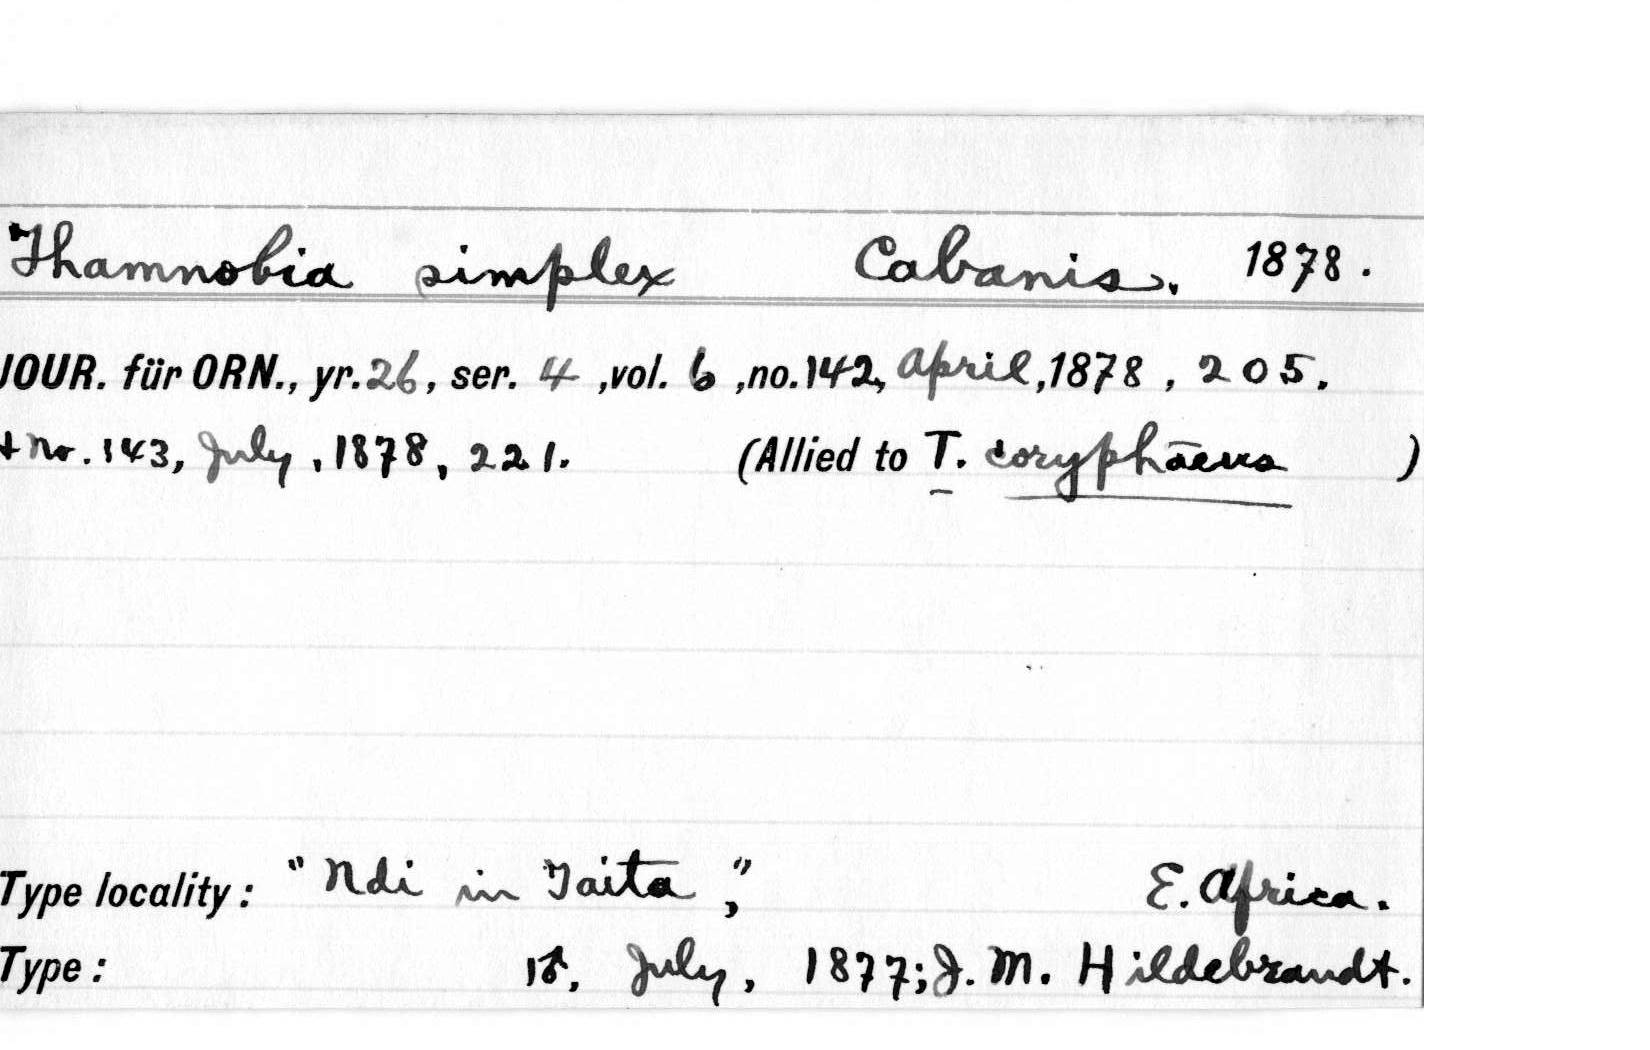 Thamnobia simplex Cabanis. 1878.
JOUR. für ORN., yr. 26, ser. 4, vol. 6, no. 142, April, 1878, 205.
+ no. 143, July, 1878, 221. (Allied to T. coryphaeus )
Type locality: "Ndi in Taita," E. Africa.
Type: 1♂, July, 1877; J. M. Hildebrandt.